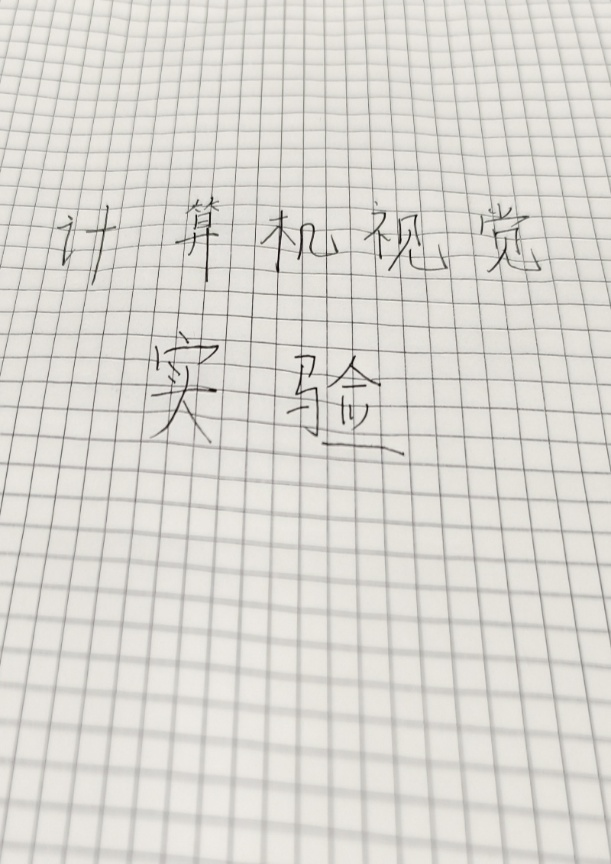 计算机视觉
实验